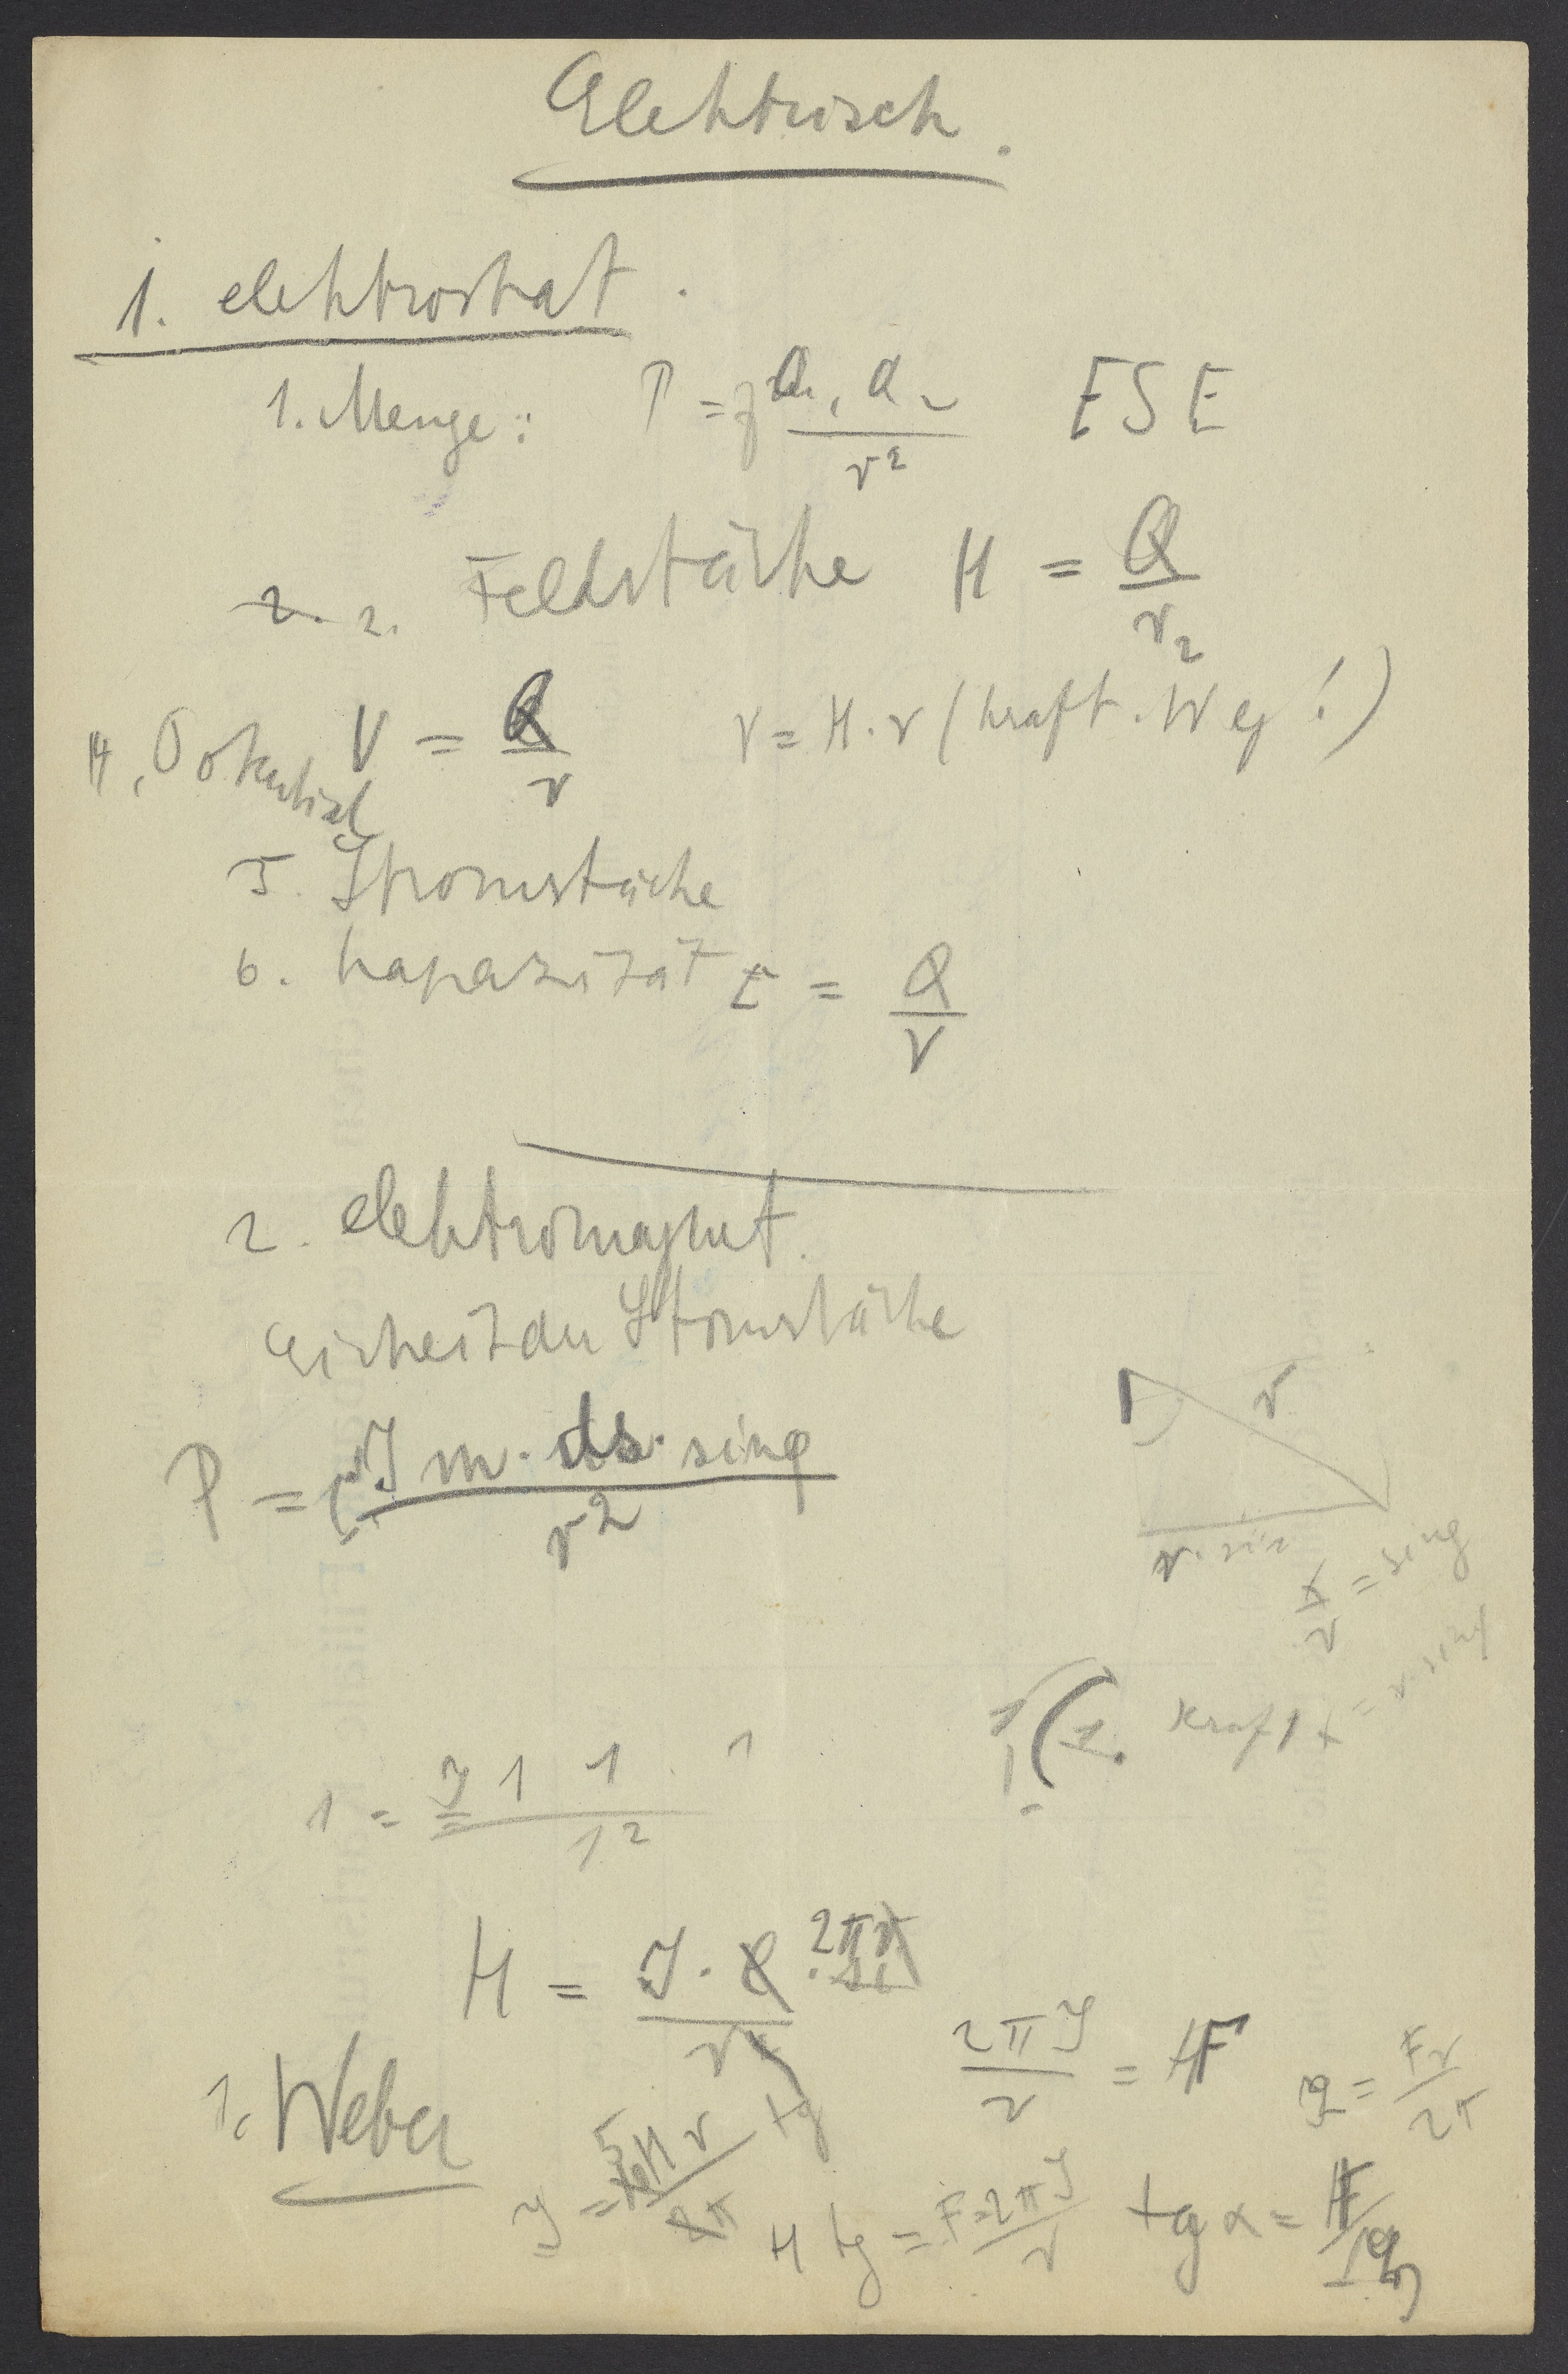 Elektrisch.
1. elektrostat.
1. Menge: P = f Q₁, Q₂ / r² ESE
2. 2. Feldstärke H = Q / r₂
4, Potential V = Q / r V = H . r (Kraft . Weg!)
5. Stromstärke
6. Kapazität C = Q / V
2. elektromagnet.
Einheit der Stromstärke
r
P = J m . ds . sin φ / r²
r . sin
x / r = sin φ
Kraft x = r . sin φ
1 = J 1 1 1 / 1²
H = J . 2πr / r
2πJ / r = F J = Fr / 2π
1. Weber
J = H r / 2π tg
H tg = F = 2πJ / r tg α = F / H